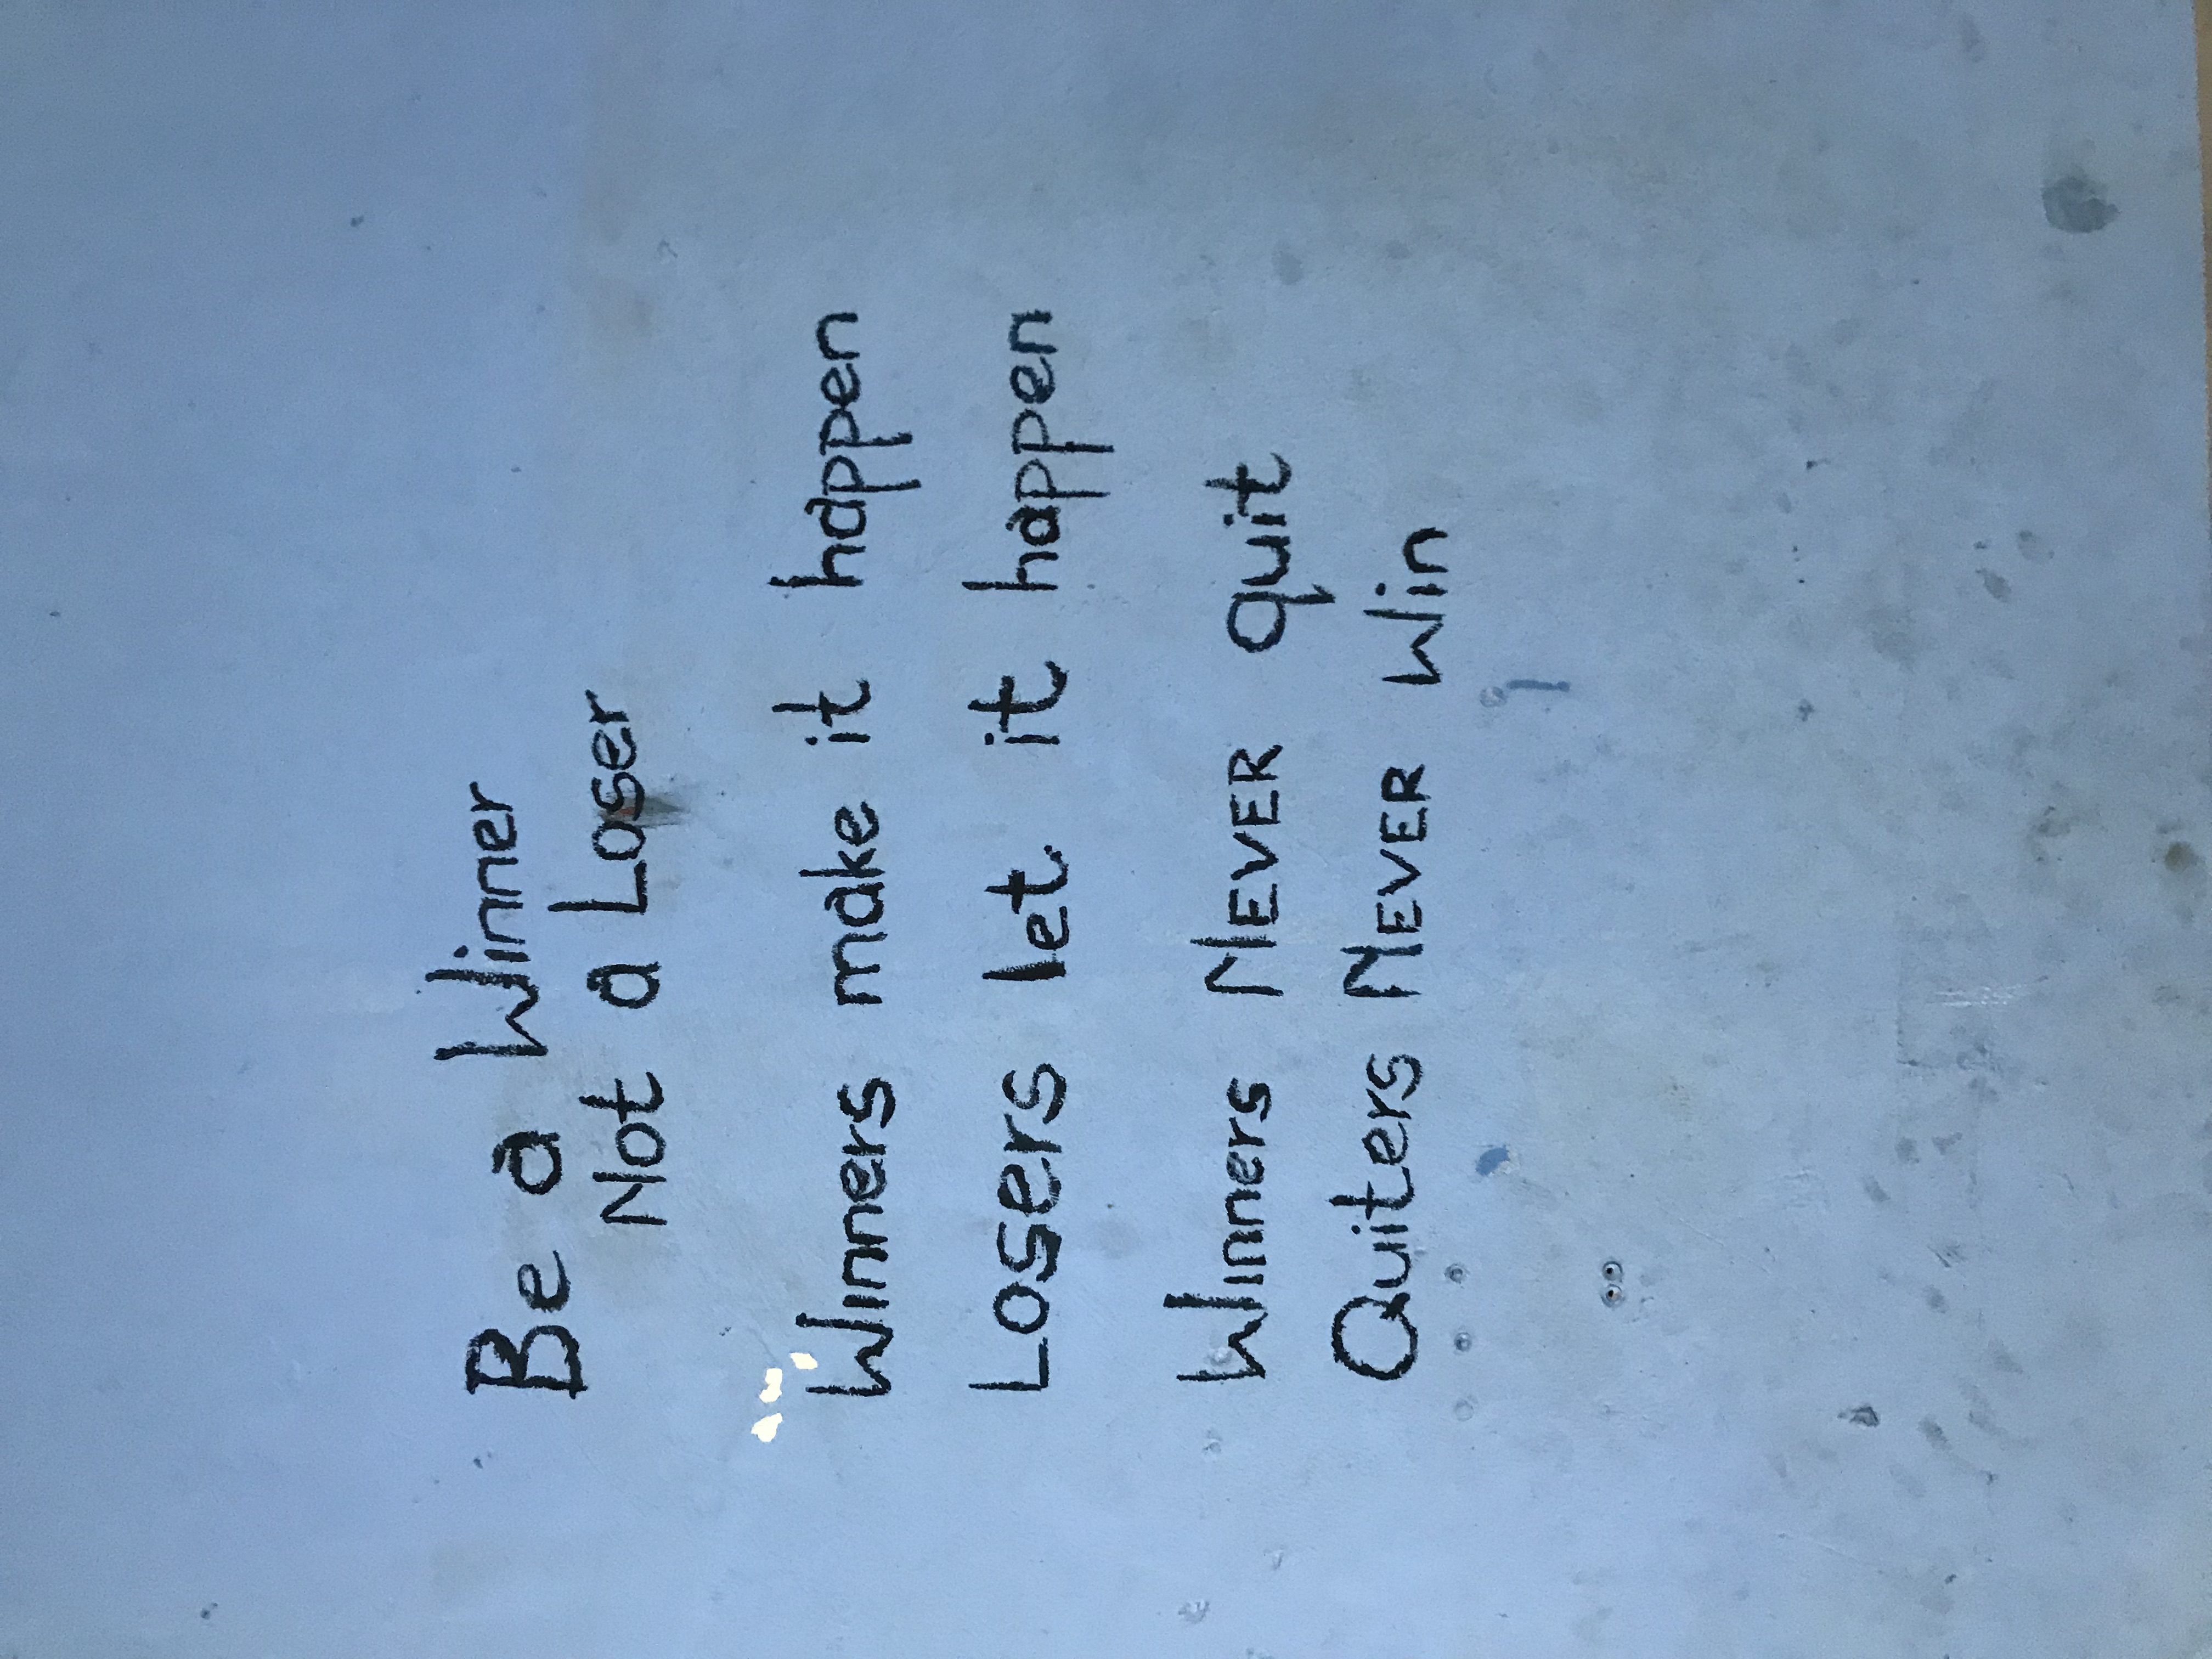 Be a Winner
Not a Loser
Winners make it happen
Losers let it happen
Winners NEVER quit
Quiters NEVER Win